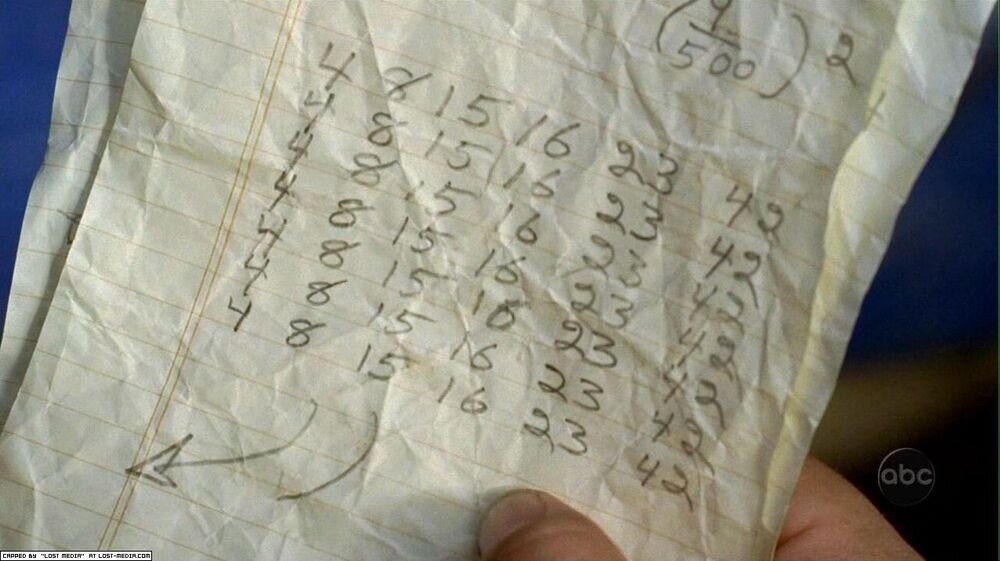 500
2
4 8 15 16 23 42
4 8 15 16 23 42
4 8 15 16 23 42
4 8 15 16 23 42
4 8 15 16 23 42
4 8 15 16 23 42
4 8 15 16 23 42
abc
CAPPED BY "LOST MEDIA" AT LOST-MEDIA.COM